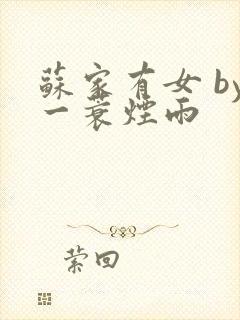 蘇家有女 by
一蓑煙雨
縈回